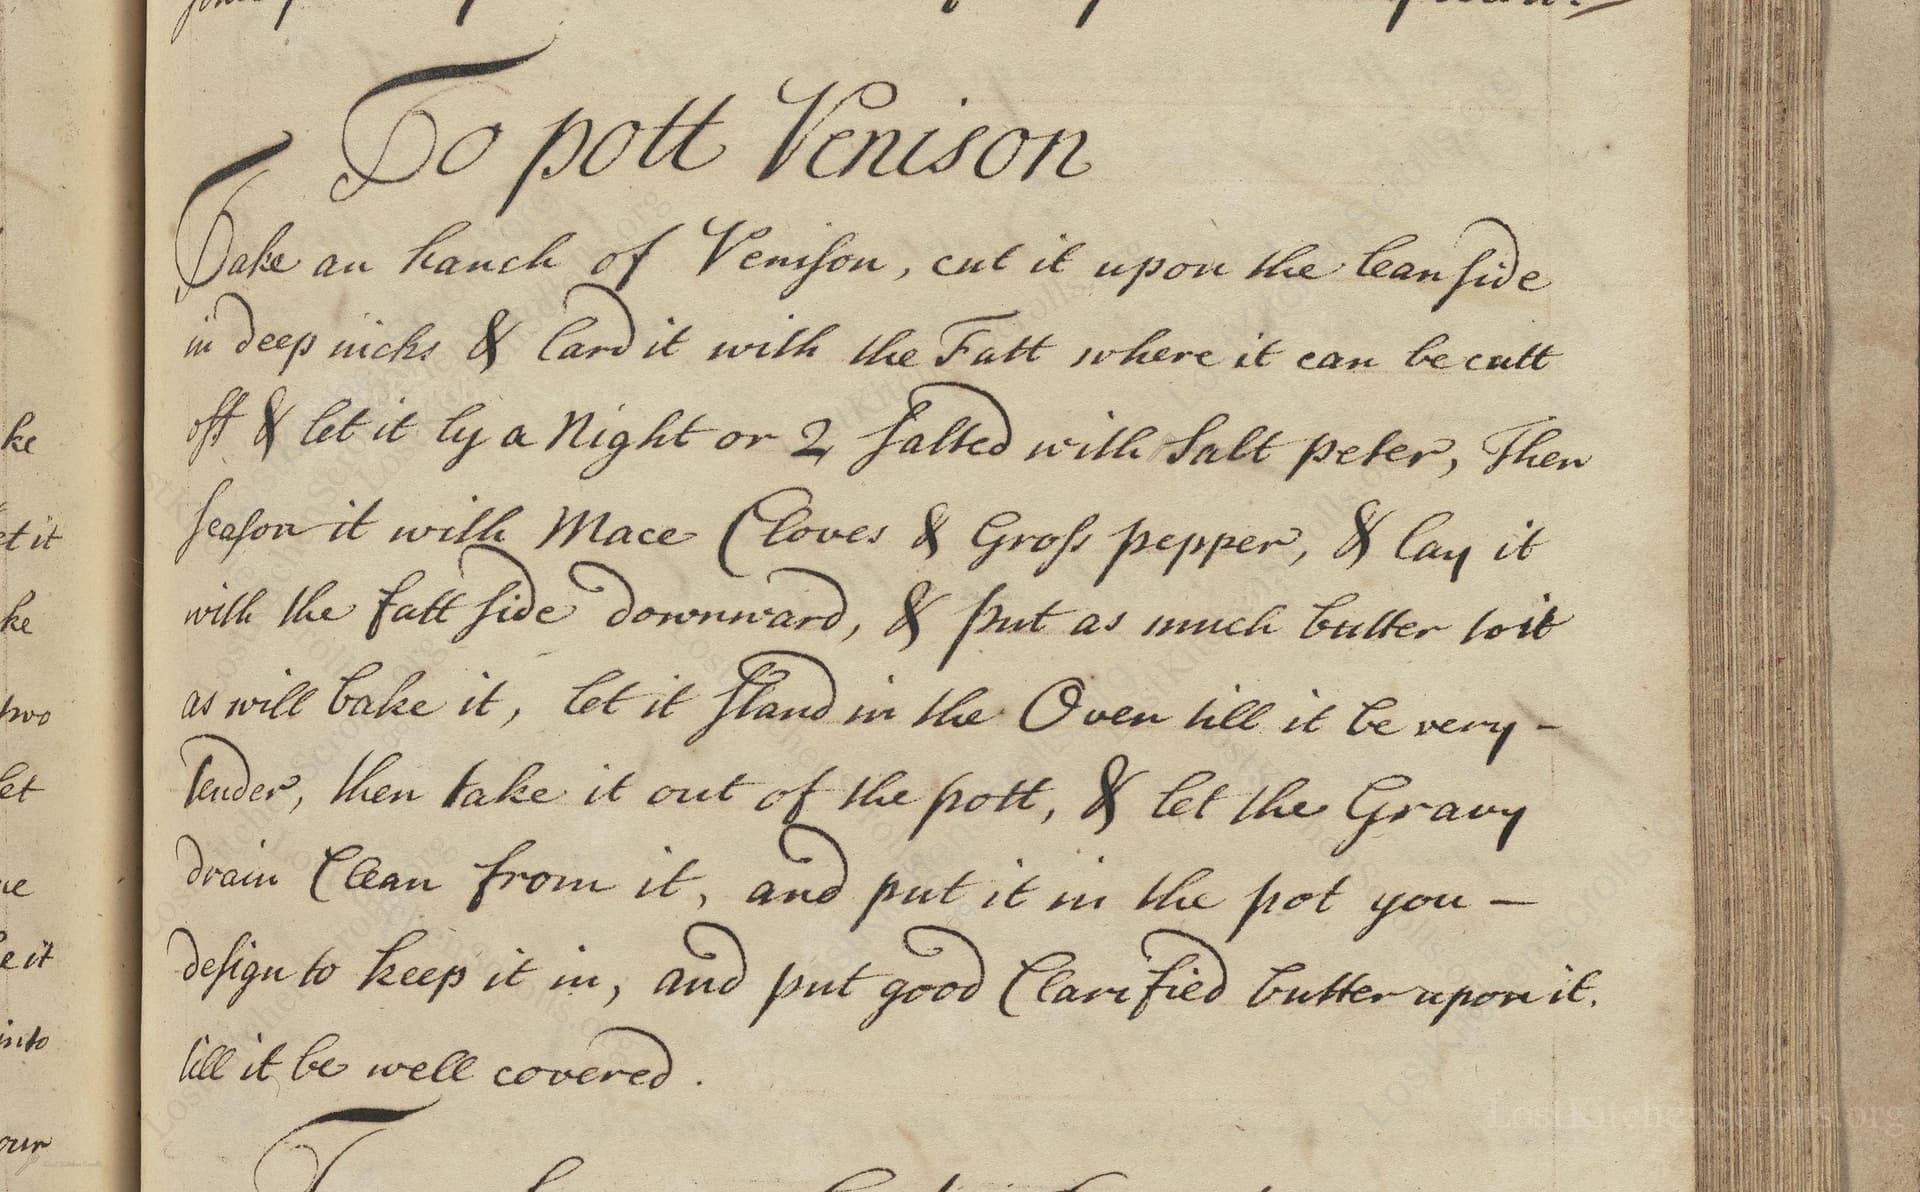 To pott Venison
Take an hanch of Veniſon, cut it upon the lean ſide
in deep nicks & lard it with the Fatt where it can be cutt
off & let it ly a Night or 2 ſalted with Salt peter, Then
ſeaſon it with Mace Cloves & Groſs pepper, & lay it
with the fatt ſide downward, & put as much butter to it
as will bake it, let it ſtand in the Oven till it be very -
tender, then take it out of the pott, & let the Gravy
drain Clean from it, and put it in the pot you -
deſign to keep it in, and put good Clarified butter upon it.
till it be well covered.
ke
et it
ke
two
let
ne
e it
into
our
LostKitchenScrolls.org